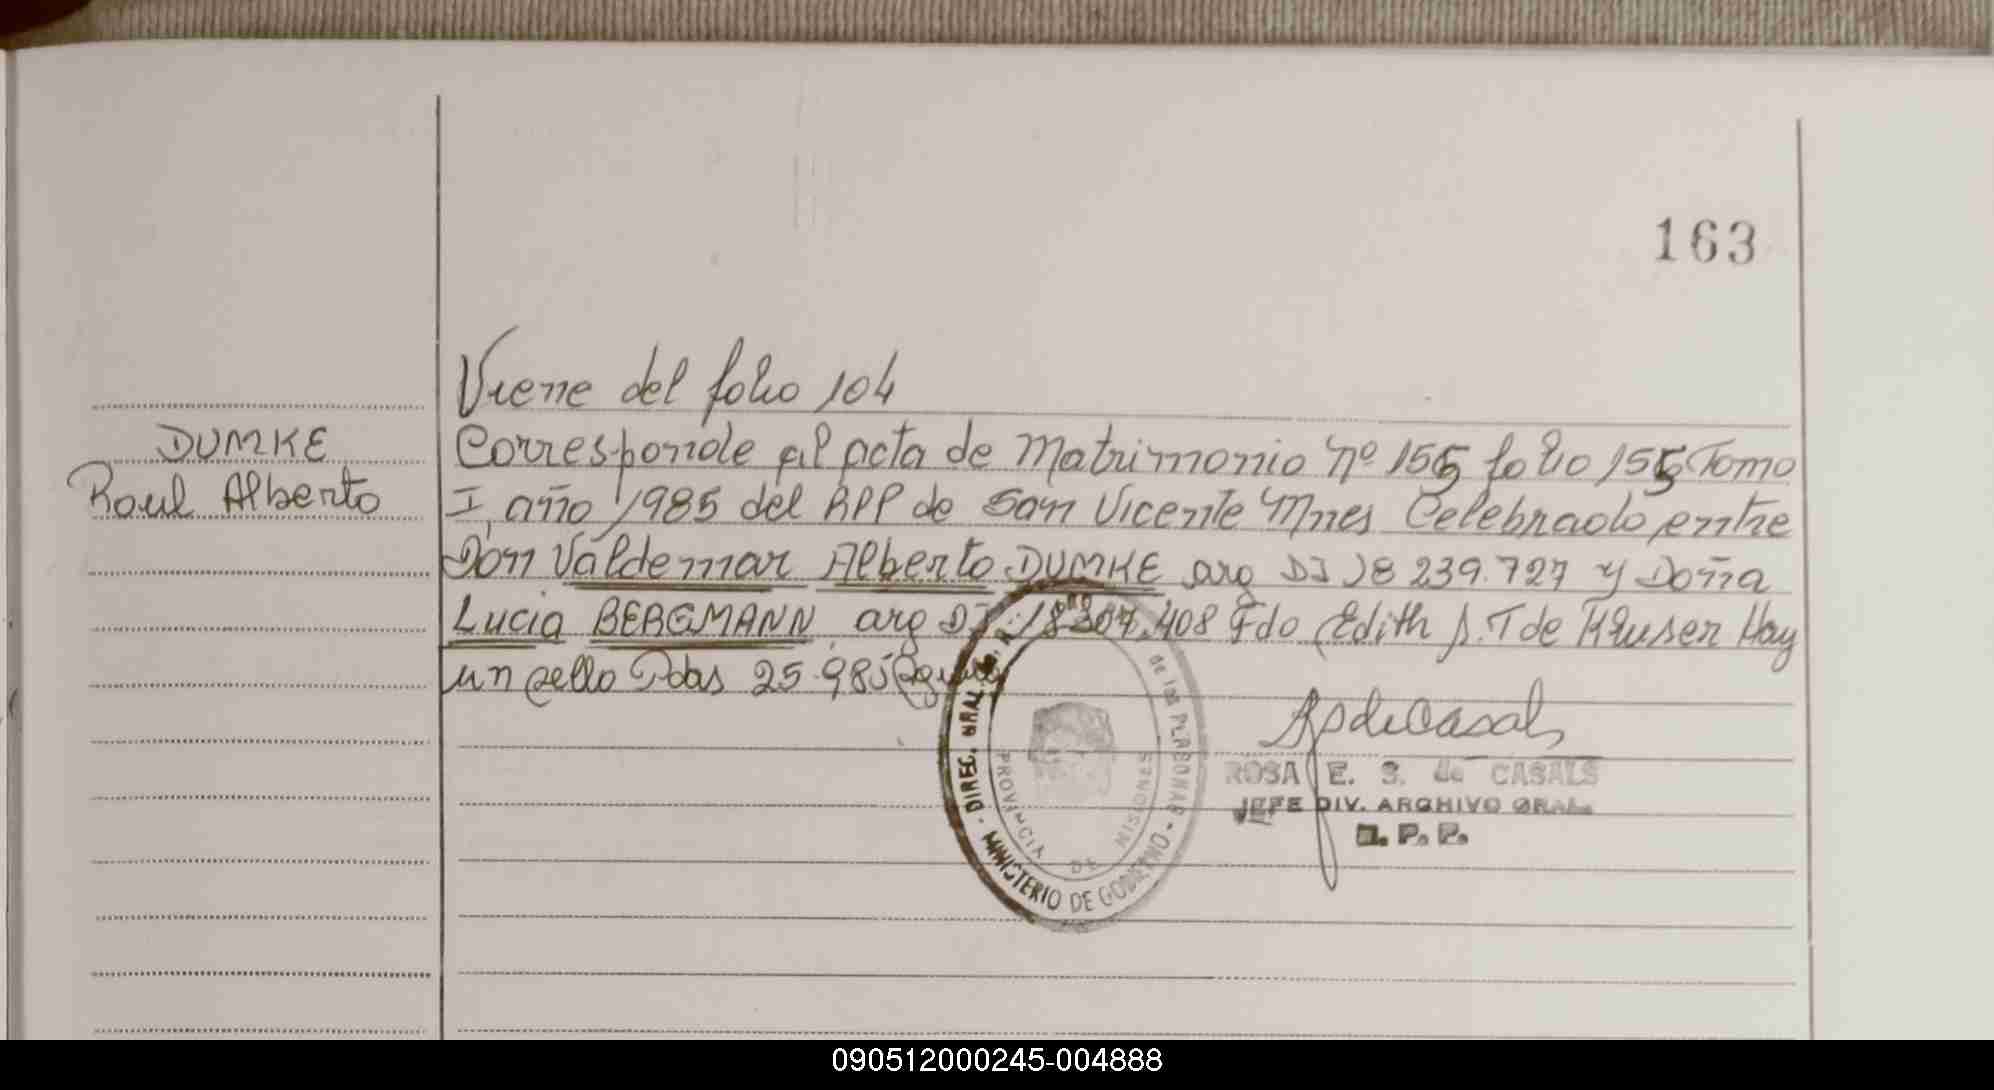 163
Viene del folio 104
DUMKE
Raul Alberto
Corresponde al acta de Matrimonio nº 155 folio 155 Tomo
I, año 1985 del RPP de San Vicente Mnes Celebrado entre
Don Valdemar Alberto DUMKE arg DI 18 239.727 y Doña
Lucia BERGMANN arg DI 18 307.408 Fdo Edith S. T de Kluser Hay
un sello Pdas 25 985
DIREC. GRAL. de las PERSONAS
MINISTERIO DE GOBIERNO
PROVINCIA DE MISIONES
ROSA E. S. de CASALS
JEFE DIV. ARCHIVO GRAL.
R. P. P.
090512000245-004888